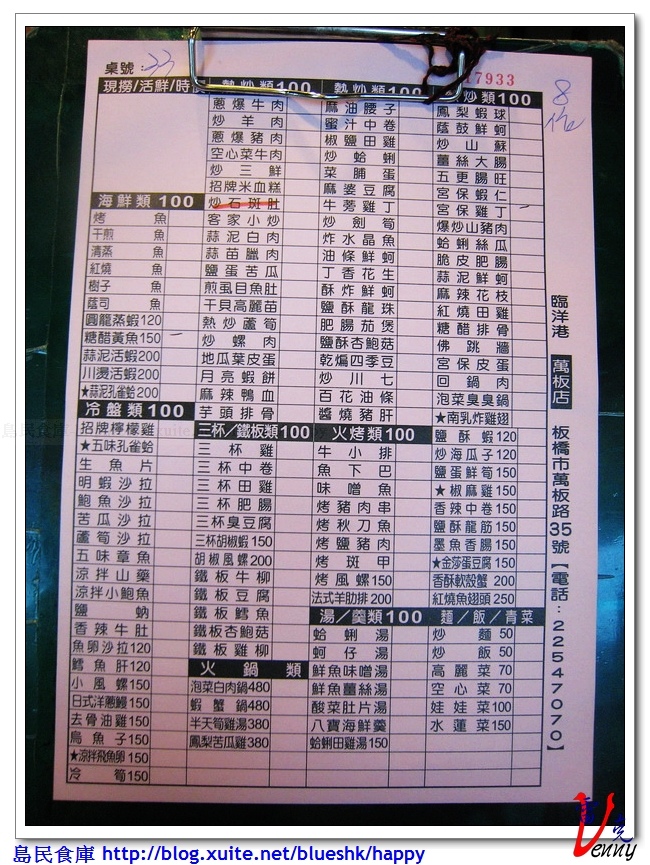 桌號：33
17933
8
現撈/活鮮/時
熱炒類100
蔥爆牛肉
炒羊肉
蔥爆豬肉
空心菜牛肉
炒三鮮
招牌米血糕
炒石斑肚
客家小炒
蒜泥白肉
蒜苗臘肉
鹽蛋苦瓜
煎虱目魚肚
干貝高麗苗
熱炒蘆筍
炒螺肉
地瓜葉皮蛋
月亮蝦餅
麻辣鴨血
芋頭排骨
熱炒類100
麻油腰子
蜜汁中卷
椒鹽田雞
炒蛤蜊
菜脯蛋
麻婆豆腐
牛蒡雞丁
炒劍筍
炸水晶魚
油條鮮蚵
丁香花生
酥炸鮮蚵
鹽酥龍珠
肥腸茄煲
鹽酥杏鮑菇
乾煸四季豆
炒川七
百花油條
醬燒豬肝
炒類100
鳳梨蝦球
蔭鼓鮮蚵
炒山蘇
薑絲大腸
五更腸旺
宮保蝦仁
宮保雞丁
爆炒山豬肉
蛤蜊絲瓜
脆皮肥腸
蒜泥鮮蚵
麻辣花枝
紅燒田雞
糖醋排骨
佛跳牆
宮保皮蛋
回鍋肉
泡菜臭臭鍋
★南乳炸雞翅
鹽酥蝦120
炒海瓜子120
鹽蛋鮮筍150
★椒麻雞150
香辣中卷150
鹽酥龍筋150
墨魚香腸150
★金莎蛋豆腐150
香酥軟殼蟹200
紅燒魚翅頭250
海鮮類100
烤魚
干煎魚
清蒸魚
紅燒魚
樹子魚
蔭司魚
圓龍蒸蝦120
糖醋黃魚150
蒜泥活蝦200
川燙活蝦200
★蒜泥孔雀蛤200
冷盤類100
招牌檸檬雞
★五味孔雀蛤
生魚片
明蝦沙拉
鮑魚沙拉
苦瓜沙拉
蘆筍沙拉
五味章魚
涼拌山藥
涼拌小鮑魚
鹽蚋
香辣牛肚
魚卵沙拉120
鱈魚肝120
小風螺150
日式洋蔥鰻150
去骨油雞150
烏魚子150
★涼拌飛魚卵150
冷筍150
三杯/鐵板類100
三杯雞
三杯中卷
三杯田雞
三杯肥腸
三杯臭豆腐
三杯胡椒蝦150
胡椒風螺200
鐵板牛柳
鐵板豆腐
鐵板鱈魚
鐵板杏鮑菇
鐵板雞柳
火鍋類
泡菜白肉鍋480
蝦蟹鍋480
半天筍雞湯380
鳳梨苦瓜雞380
火烤類100
牛小排
魚下巴
味噌魚
烤豬肉串
烤秋刀魚
烤鹽豬肉
烤斑甲
烤風螺150
法式羊肋排200
湯/羹類100
蛤蜊湯
蚵仔湯
鮮魚味噌湯
鮮魚薑絲湯
酸菜肚片湯
八寶海鮮羹
蛤蜊田雞湯150
麵/飯/青菜
炒麵50
炒飯50
高麗菜70
空心菜70
娃娃菜100
水蓮菜150
臨洋港 萬板店 板橋市萬板路35號【電話：22547070】
島民食庫
Venny
島民食庫 http://blog.xuite.net/blueshk/happy